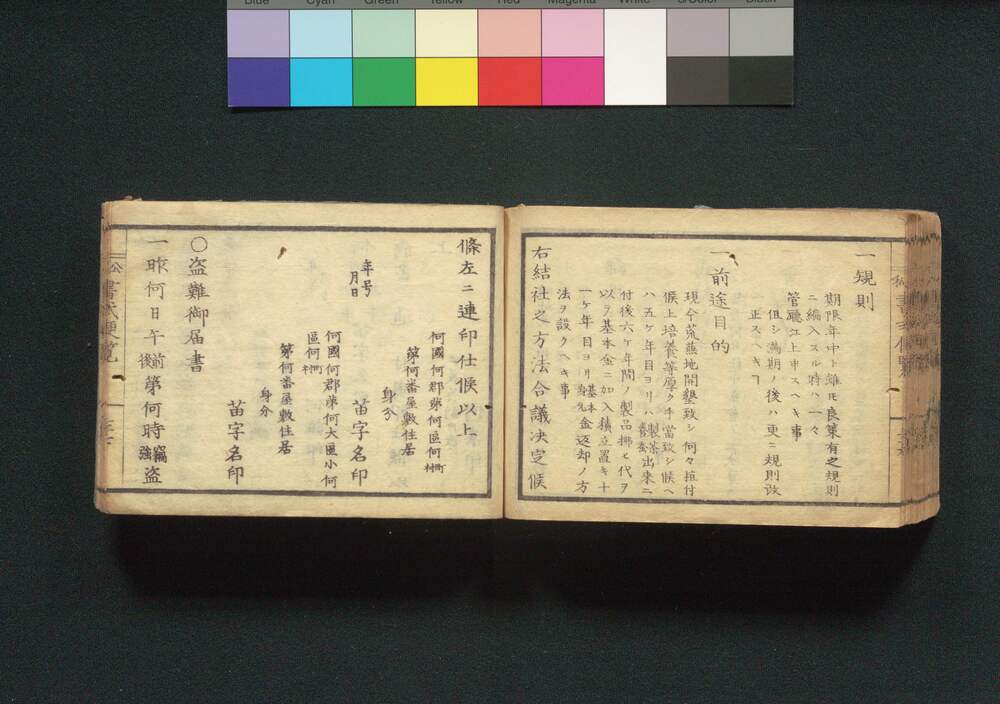 Blue Cyan Green Yellow Red Magenta White 3/Color Black
一規則
期限年中ト雖モ良策有之規則
ニ編入スル時ハ一々
管廳江上申スヘキ事
但シ満期ノ後ハ更ニ規則改
正スヘキヿ
一前途目的
現今荒蕪地開墾致シ何々植付
候上培養等厚ク手當致シ候ヘ
ハ五ケ年目ヨリハ製茶養蚕出来ニ
付後六ケ年間ノ製品拂ヒ代ヲ
以テ基本金ニ加入積立置キ十
一ケ年目ヨリ基本身元金返却ノ方
法ヲ設クヘキ事
右結社之方法合議決定候
條左ニ連印仕候以上
何國何郡第何區何町村
第何番屋敷住居
身分
苗字名印
年号月日
何國何郡第何大區小何
區何町村
第何番屋敷住居
身分
苗字名印
〇盗難御届書
一昨何日午前後第何時竊強盗
公
書式便覧